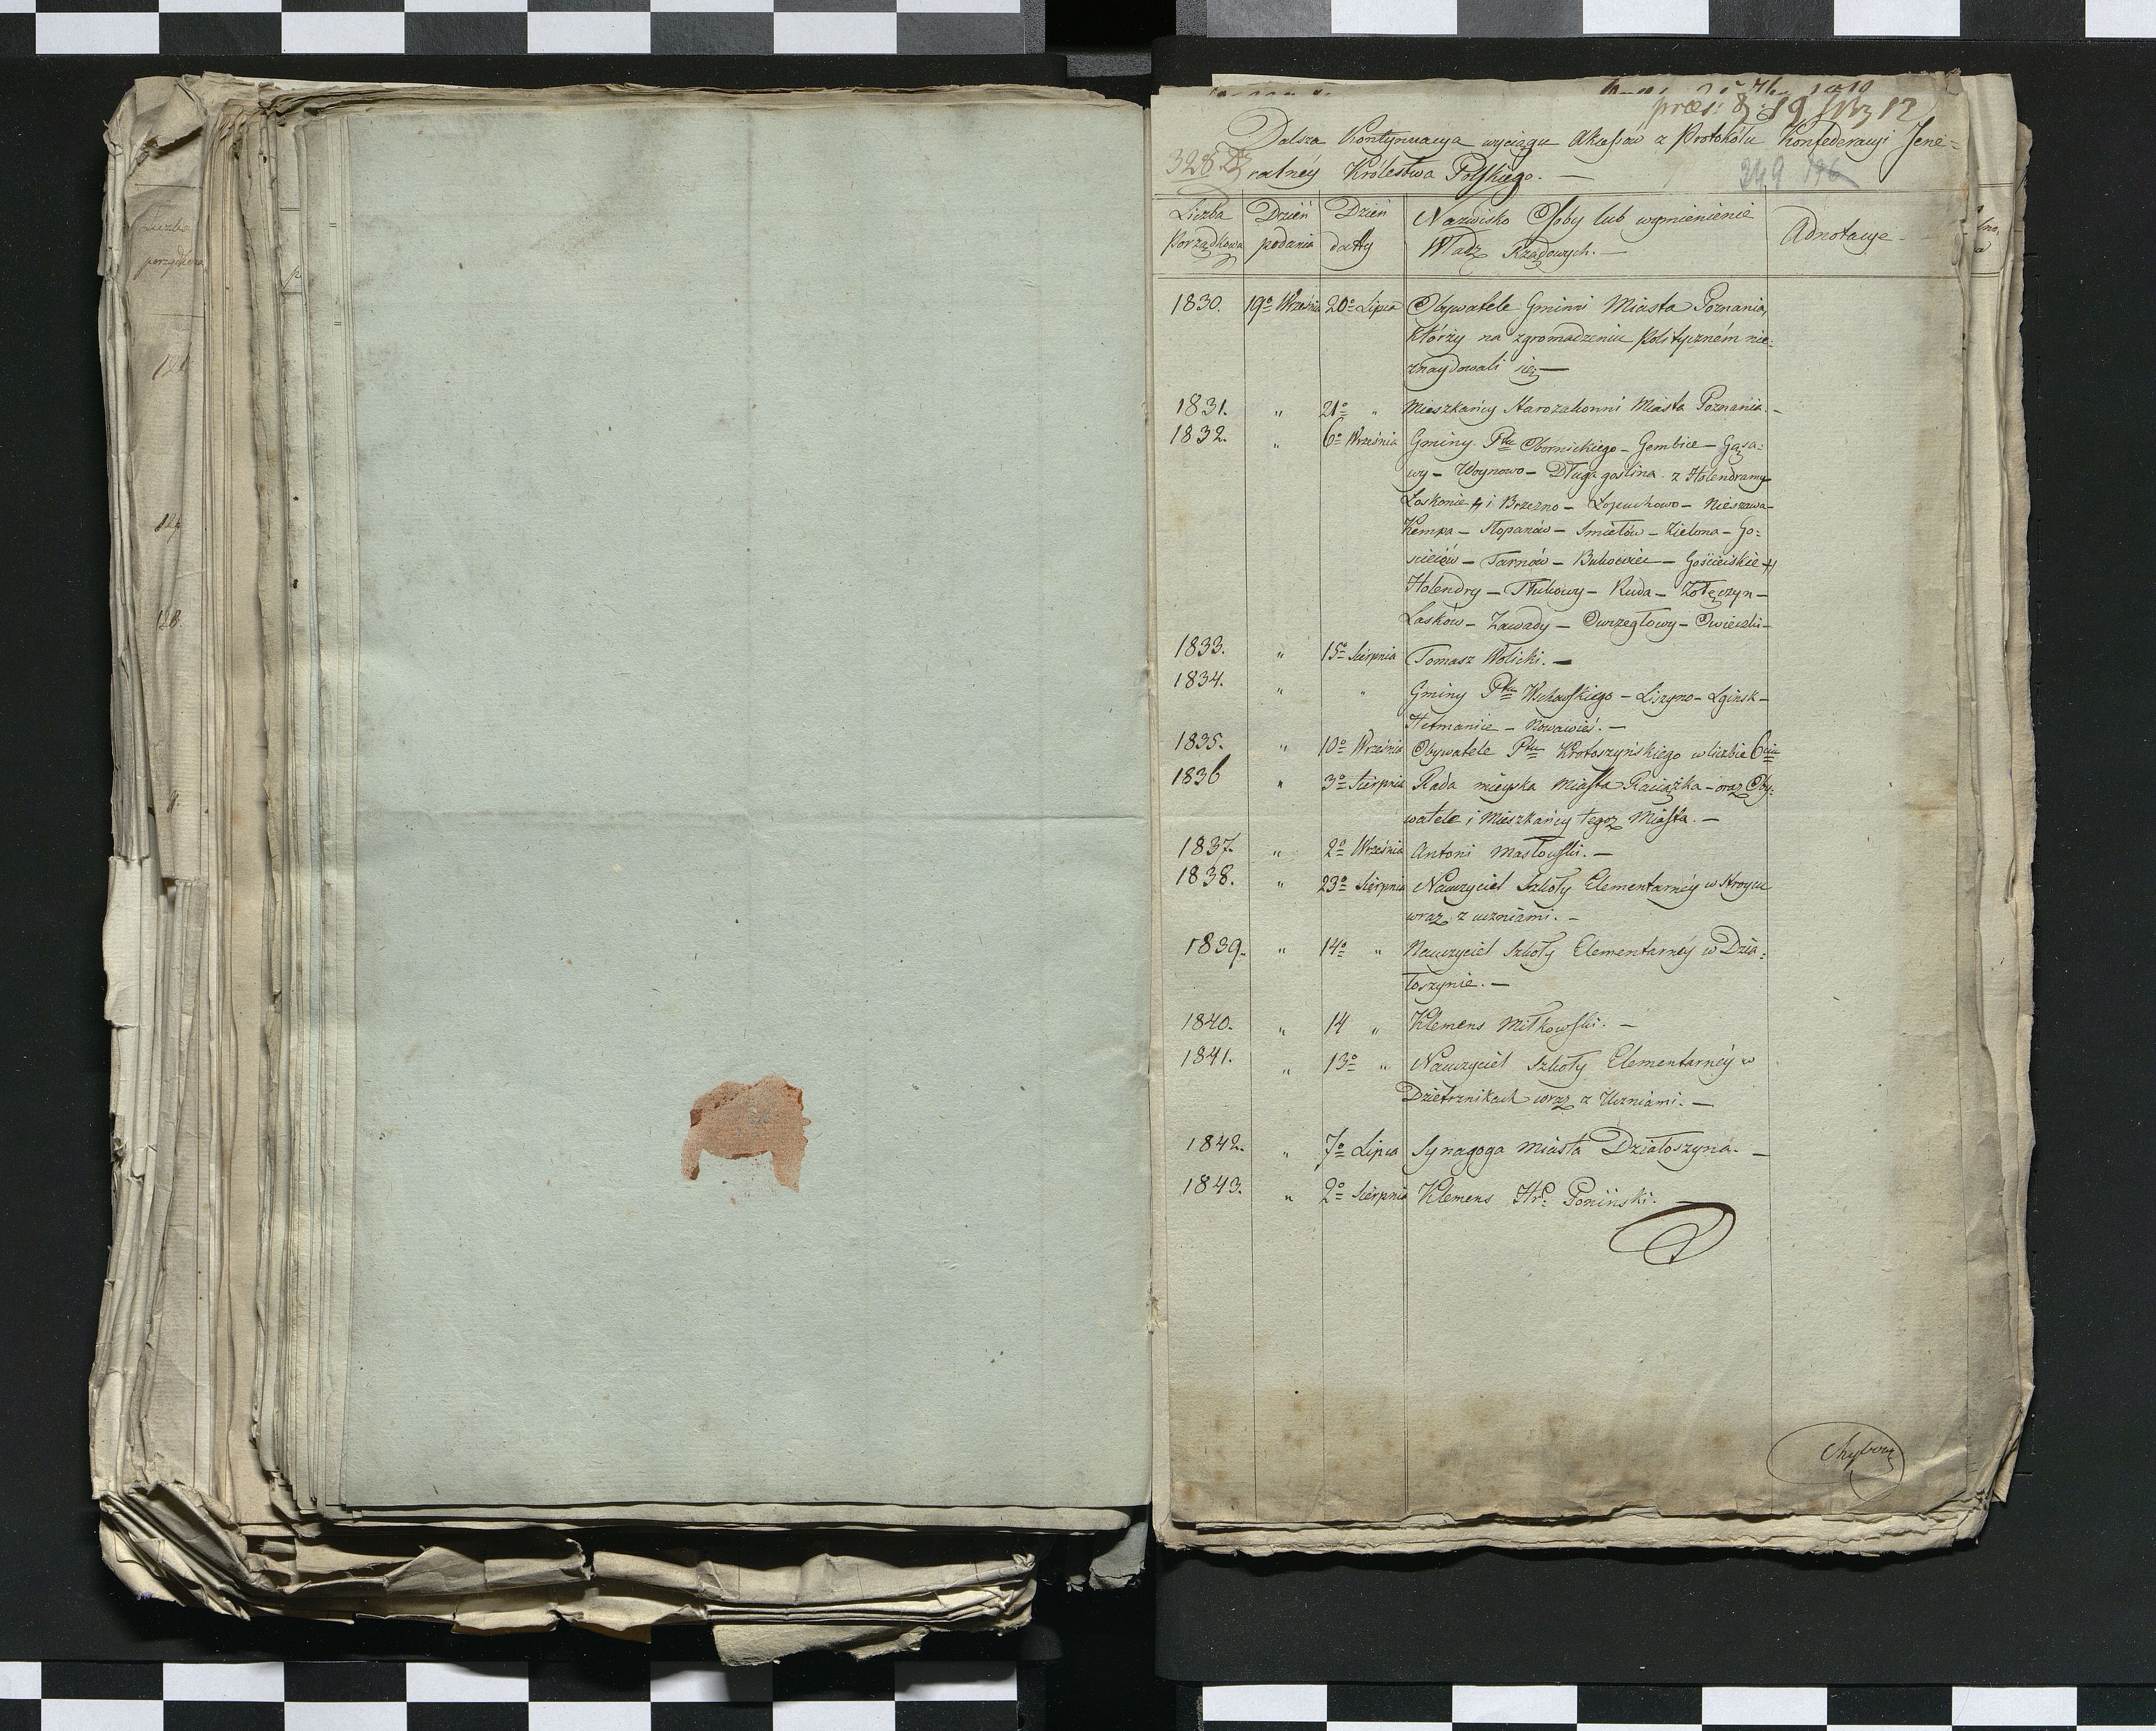 Liczba
porządkowa
præs: d: 19 7brz 12
Dalsza Kontynuacya wyciągu Akcessów z Protokółu Konfederacyi Jene=
328.23 ralnéy Królestwa Polskiego. —
249 196
Liczba Porządkowa
Dzień podania
Dzień datty
Nazwisko Osoby lub wymienienie
Władz Rządowych. —
Adnotacye -
1830. 19º Września 20º Lipca Obywatele Gminni Miasta Poznania,
którzy na zgromadzeniu Polityczném nie=
znaydowali się —
1831. " 21º " Mieszkańcy Starozakonni Miasta Poznania. -
1832. " 6º Września Gminy Ptu Obornickiego - Gembice - Gąsa=
wy - Woynowo - Długa goślina z Holendramy
Łoskonie i Brzezno - Łopuchowo - Nieszawa -
Kempa - Stopanów - Smiełów - Zielona - Go=
ściejów - Tarnów - Bukowiec - Gościeiskie
Holendry - Tłukowy - Ruda - Żołęczyn -
Lasków - Zawady - Owczegłowy - Owieczki -
1833. " 15º Sierpnia Tomasz Wolicki. —
1834. " " Gminy Ptu Wschowskiego - Liszyno - Lginsk -
Hetmanice - Nowawieś. —
1835. " 10º Września Obywatele Ptu Krotoszyńskiego w liczbie 6ciu
1836 " 3º Sierpnia Rada mieyska Miasta Raciążka - oraz Oby=
watele i Mieszkańcy tegoż Miasta. —
1837. " 2º Września Antoni Masłowski. —
1838. " 23º Sierpnia Nauczyciel Szkoły Elementarnéy w Stroycu
wraz z uczniami. —
1839. " 14º " Nauczyciel Szkoły Elementarnéy w Dzia=
łoszynie. —
1840. " 14 " Klemens Miłkowski. —
1841. " 13º " Nauczyciel Szkoły Elementarnéy w
Dzietrznikach wraz z Uczniami. —
1842. " 7º Lipca Synagoga Miasta Działoszyna. —
1843. " 2º Sierpnia Klemens Hr. Poniński. —